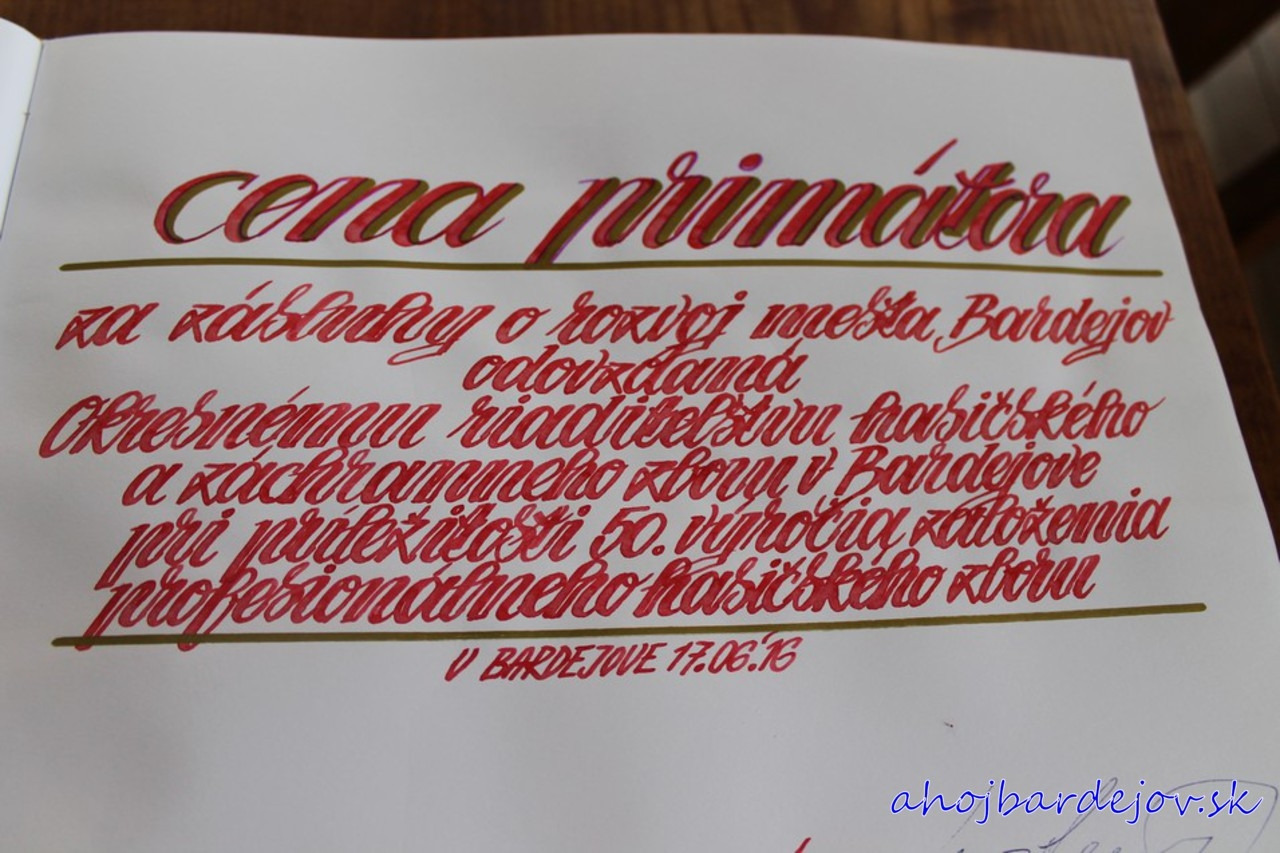 cena primátora
za zásluhy o rozvoj mesta Bardejov
odovzdaná
Okresnému riaditeľstvu hasičského
a záchranného zboru v Bardejove
pri príležitosti 50. výročia založenia
profesionálneho hasičského zboru
V BARDEJOVE 17.06.'16
ahojbardejov.sk